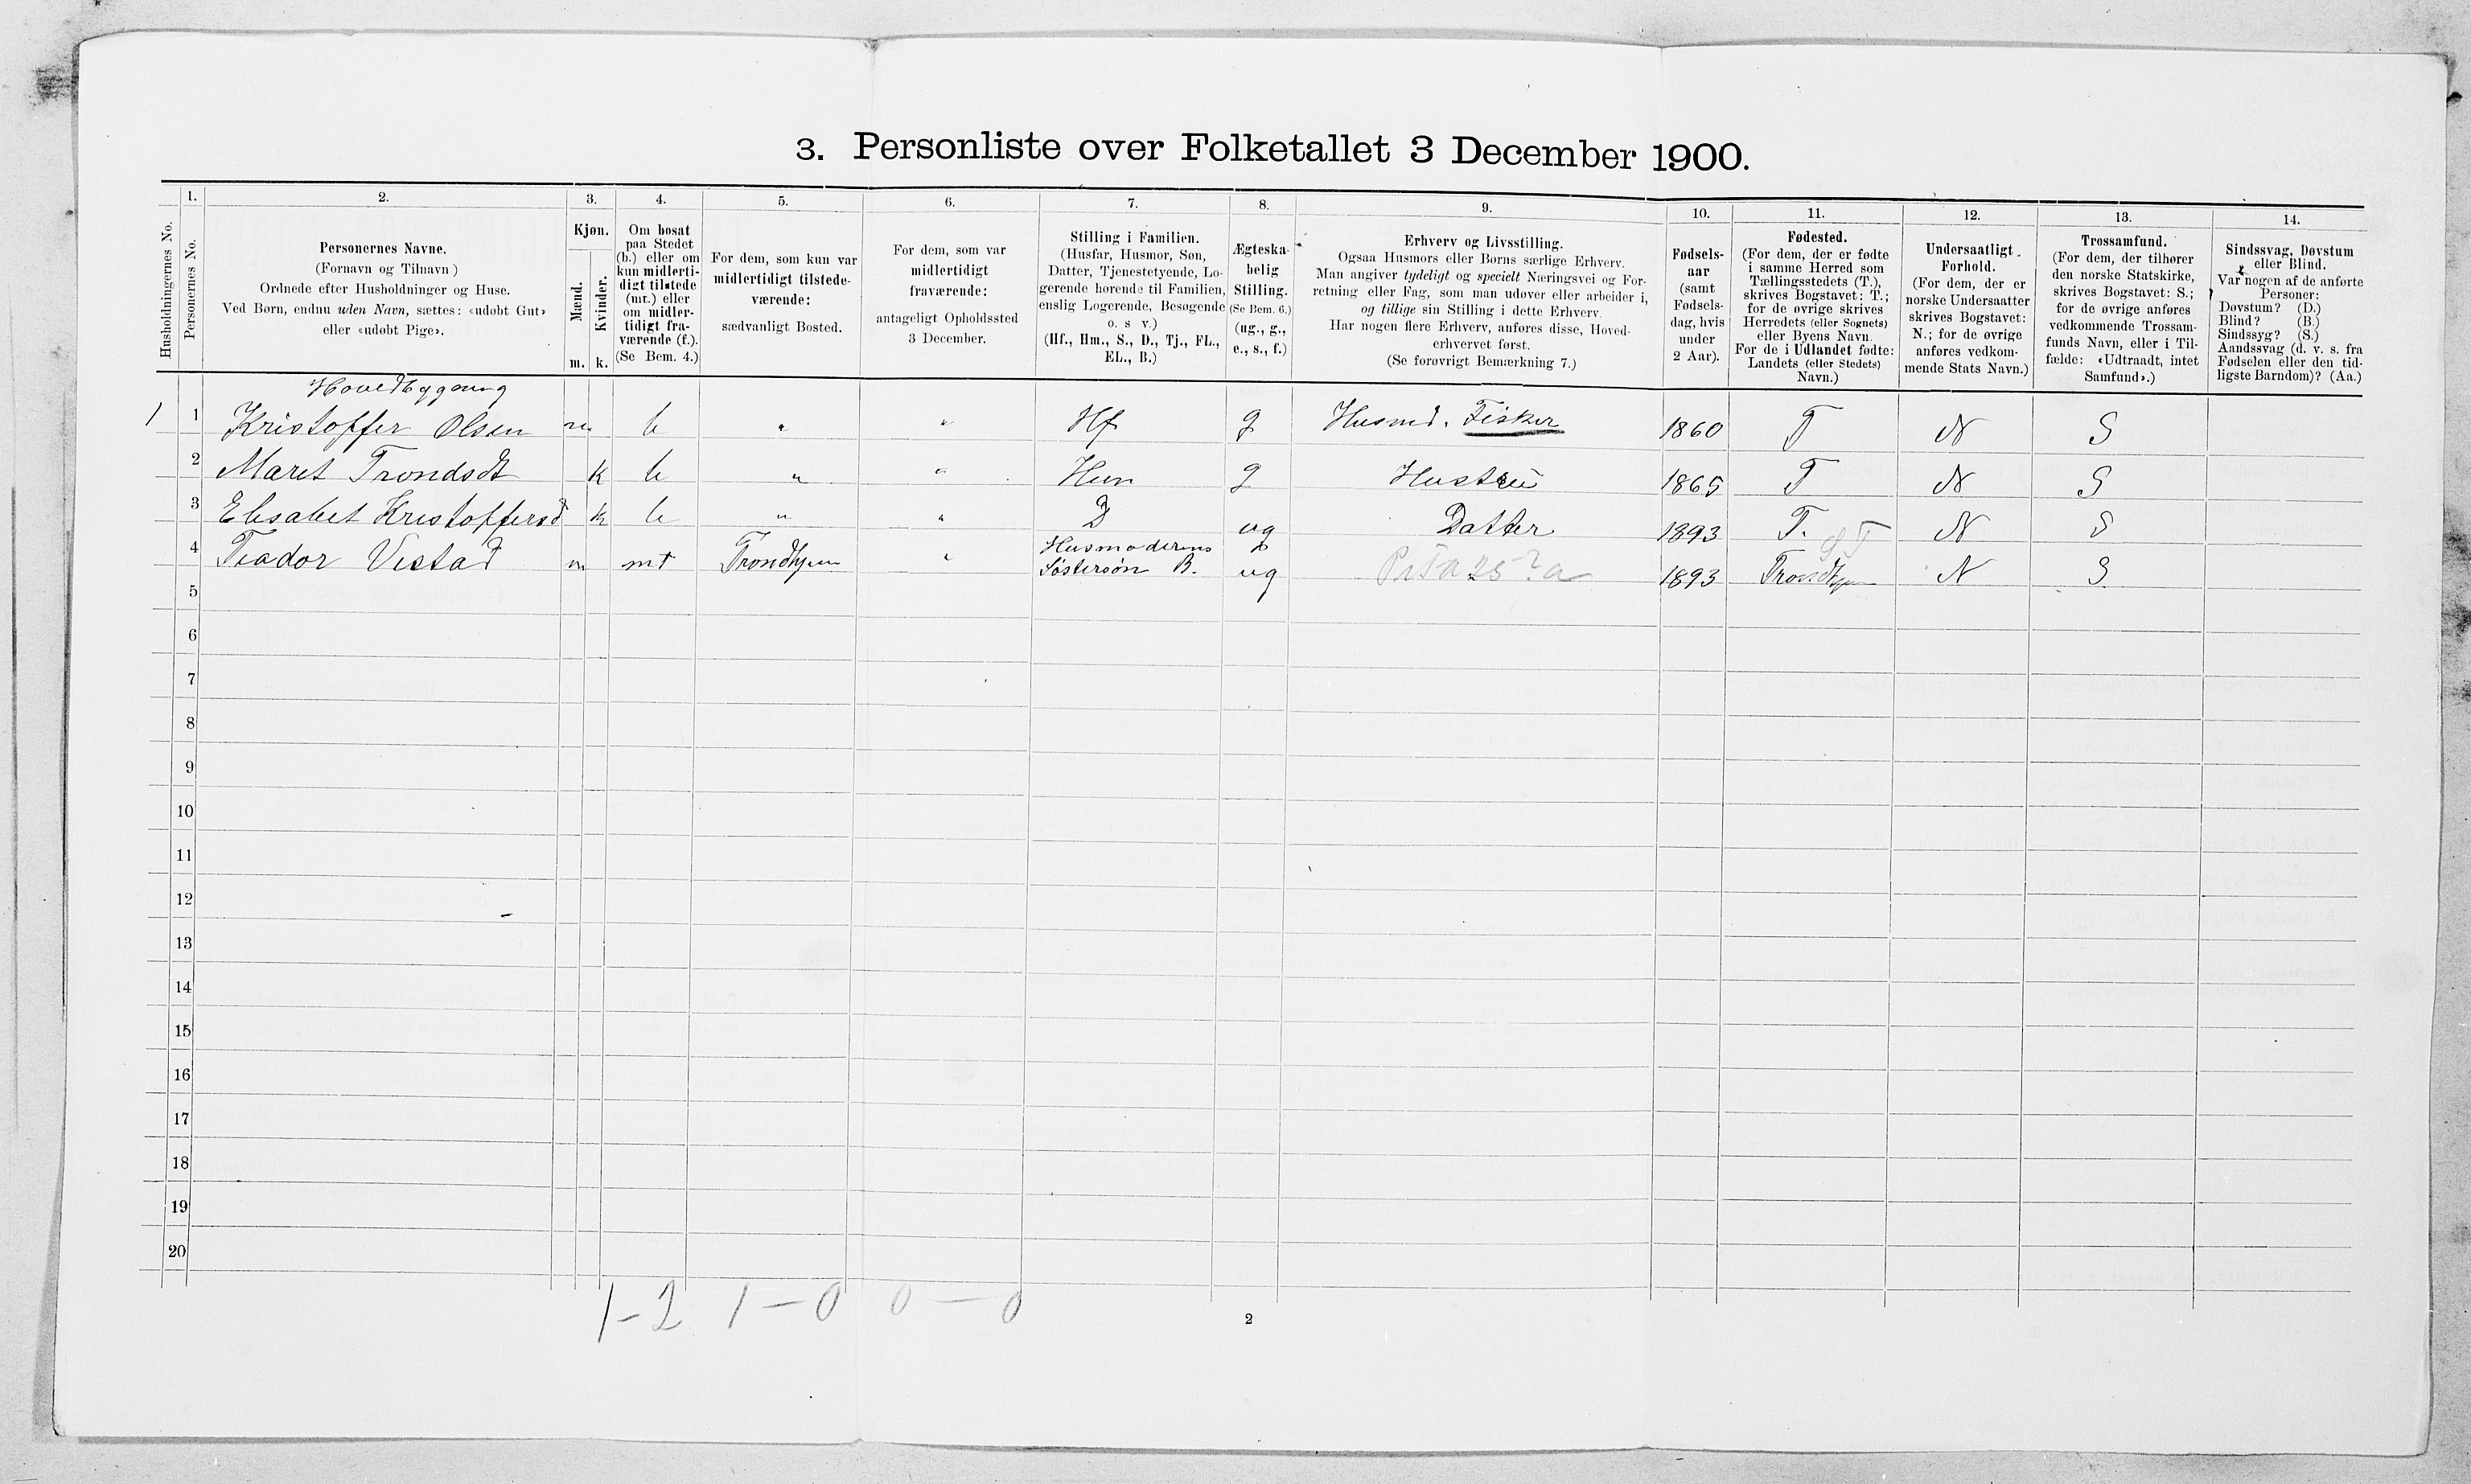 3. Personliste over Folketallet 3 December 1900.
Husholdningernes No.
1.
Personernes No.
2.
Personernes Navne.
(Fornavn og Tilnavn)
Ordnede efter Husholdninger og Huse.
Ved Børn, endnu uden Navn, sættes: «udøbt Gut»
eller «udøbt Pige».
3.
Kjøn.
Mænd.
Kvinder.
m. k.
4.
Om bosat
paa Stedet
(b.) eller om
kun midlerti-
digt tilstede
(mt.) eller
om midler-
tidigt fra-
værende (f.).
(Se Bem. 4.)
5.
For dem, som kun var
midlertidigt tilstede-
værende:
sædvanligt Bosted.
6.
For dem, som var
midlertidigt
fraværende:
antageligt Opholdssted
3 December.
7.
Stilling i Familien.
(Husfar, Husmor, Søn,
Datter, Tjenestetyende, Lo-
gerende hørende til Familien,
enslig Logerende, Besøgende
o. s v.)
(Hf., Hm., S., D., Tj., FL.,
EL., B.)
8.
Ægteska-
belig
Stilling.
(Se Bem. 6.)
(ug., g.,
e., s., f.)
9.
Erhverv og Livsstilling.
Ogsaa Husmors eller Børns særlige Erhverv.
Man angiver tydeligt og specielt Næringsvei og For-
retning eller Fag, som man udøver eller arbeider i,
og tillige sin Stilling i dette Erhverv.
Har nogen flere Erhverv, anføres disse, Hoved-
erhvervet først.
(Se forøvrigt Bemærkning 7.)
10.
Fødsels-
aar
(samt
Fødsels-
dag, hvis
under
2 Aar).
11.
Fødested.
(For dem, der er fødte
i samme Herred som
Tællingsstedets (T.),
skrives Bogstavet: T.;
for de øvrige skrives
Herredets (eller Sognets)
eller Byens Navn.
For de i Udlandet fødte:
Landets (eller Stedets)
Navn.)
12.
Undersaatligt
Forhold.
(For dem, der er
norske Undersaatter
skrives Bogstavet:
N.; for de øvrige
anføres vedkom-
mende Stats Navn.)
13.
Trossamfund.
(For dem, der tilhører
den norske Statskirke,
skrives Bogstavet: S.;
for de øvrige anføres
vedkommende Trossam-
funds Navn, eller i Til-
fælde: «Udtraadt, intet
Samfund».)
14.
Sindssvag, Døvstum
eller Blind.
Var nogen af de anførte
Personer:
Døvstum? (D.)
Blind? (B.)
Sindssyg? (S.)
Aandssvag (d. v. s. fra
Fødselen eller den tid-
ligste Barndom)? (Aa.)
Hovedbygning
1 1 Kristoffer Olsen m b " " Hf g Husmd. Fisker 1860 T N S
2 Maret Trondsdt k b " " Hun g Hustru 1865 T N S
3 Elisabet Kristoffersd k b " " D ug Datter 1893 T. N S
4 Teador Vestad m mt Trondhjem " Husmoderens
Søstersøn B. ug 1893 Trondhjem N S
5
6
7
8
9
10
11
12
13
14
15
16
17
18
19
20
1-2 1-0 0-0
2